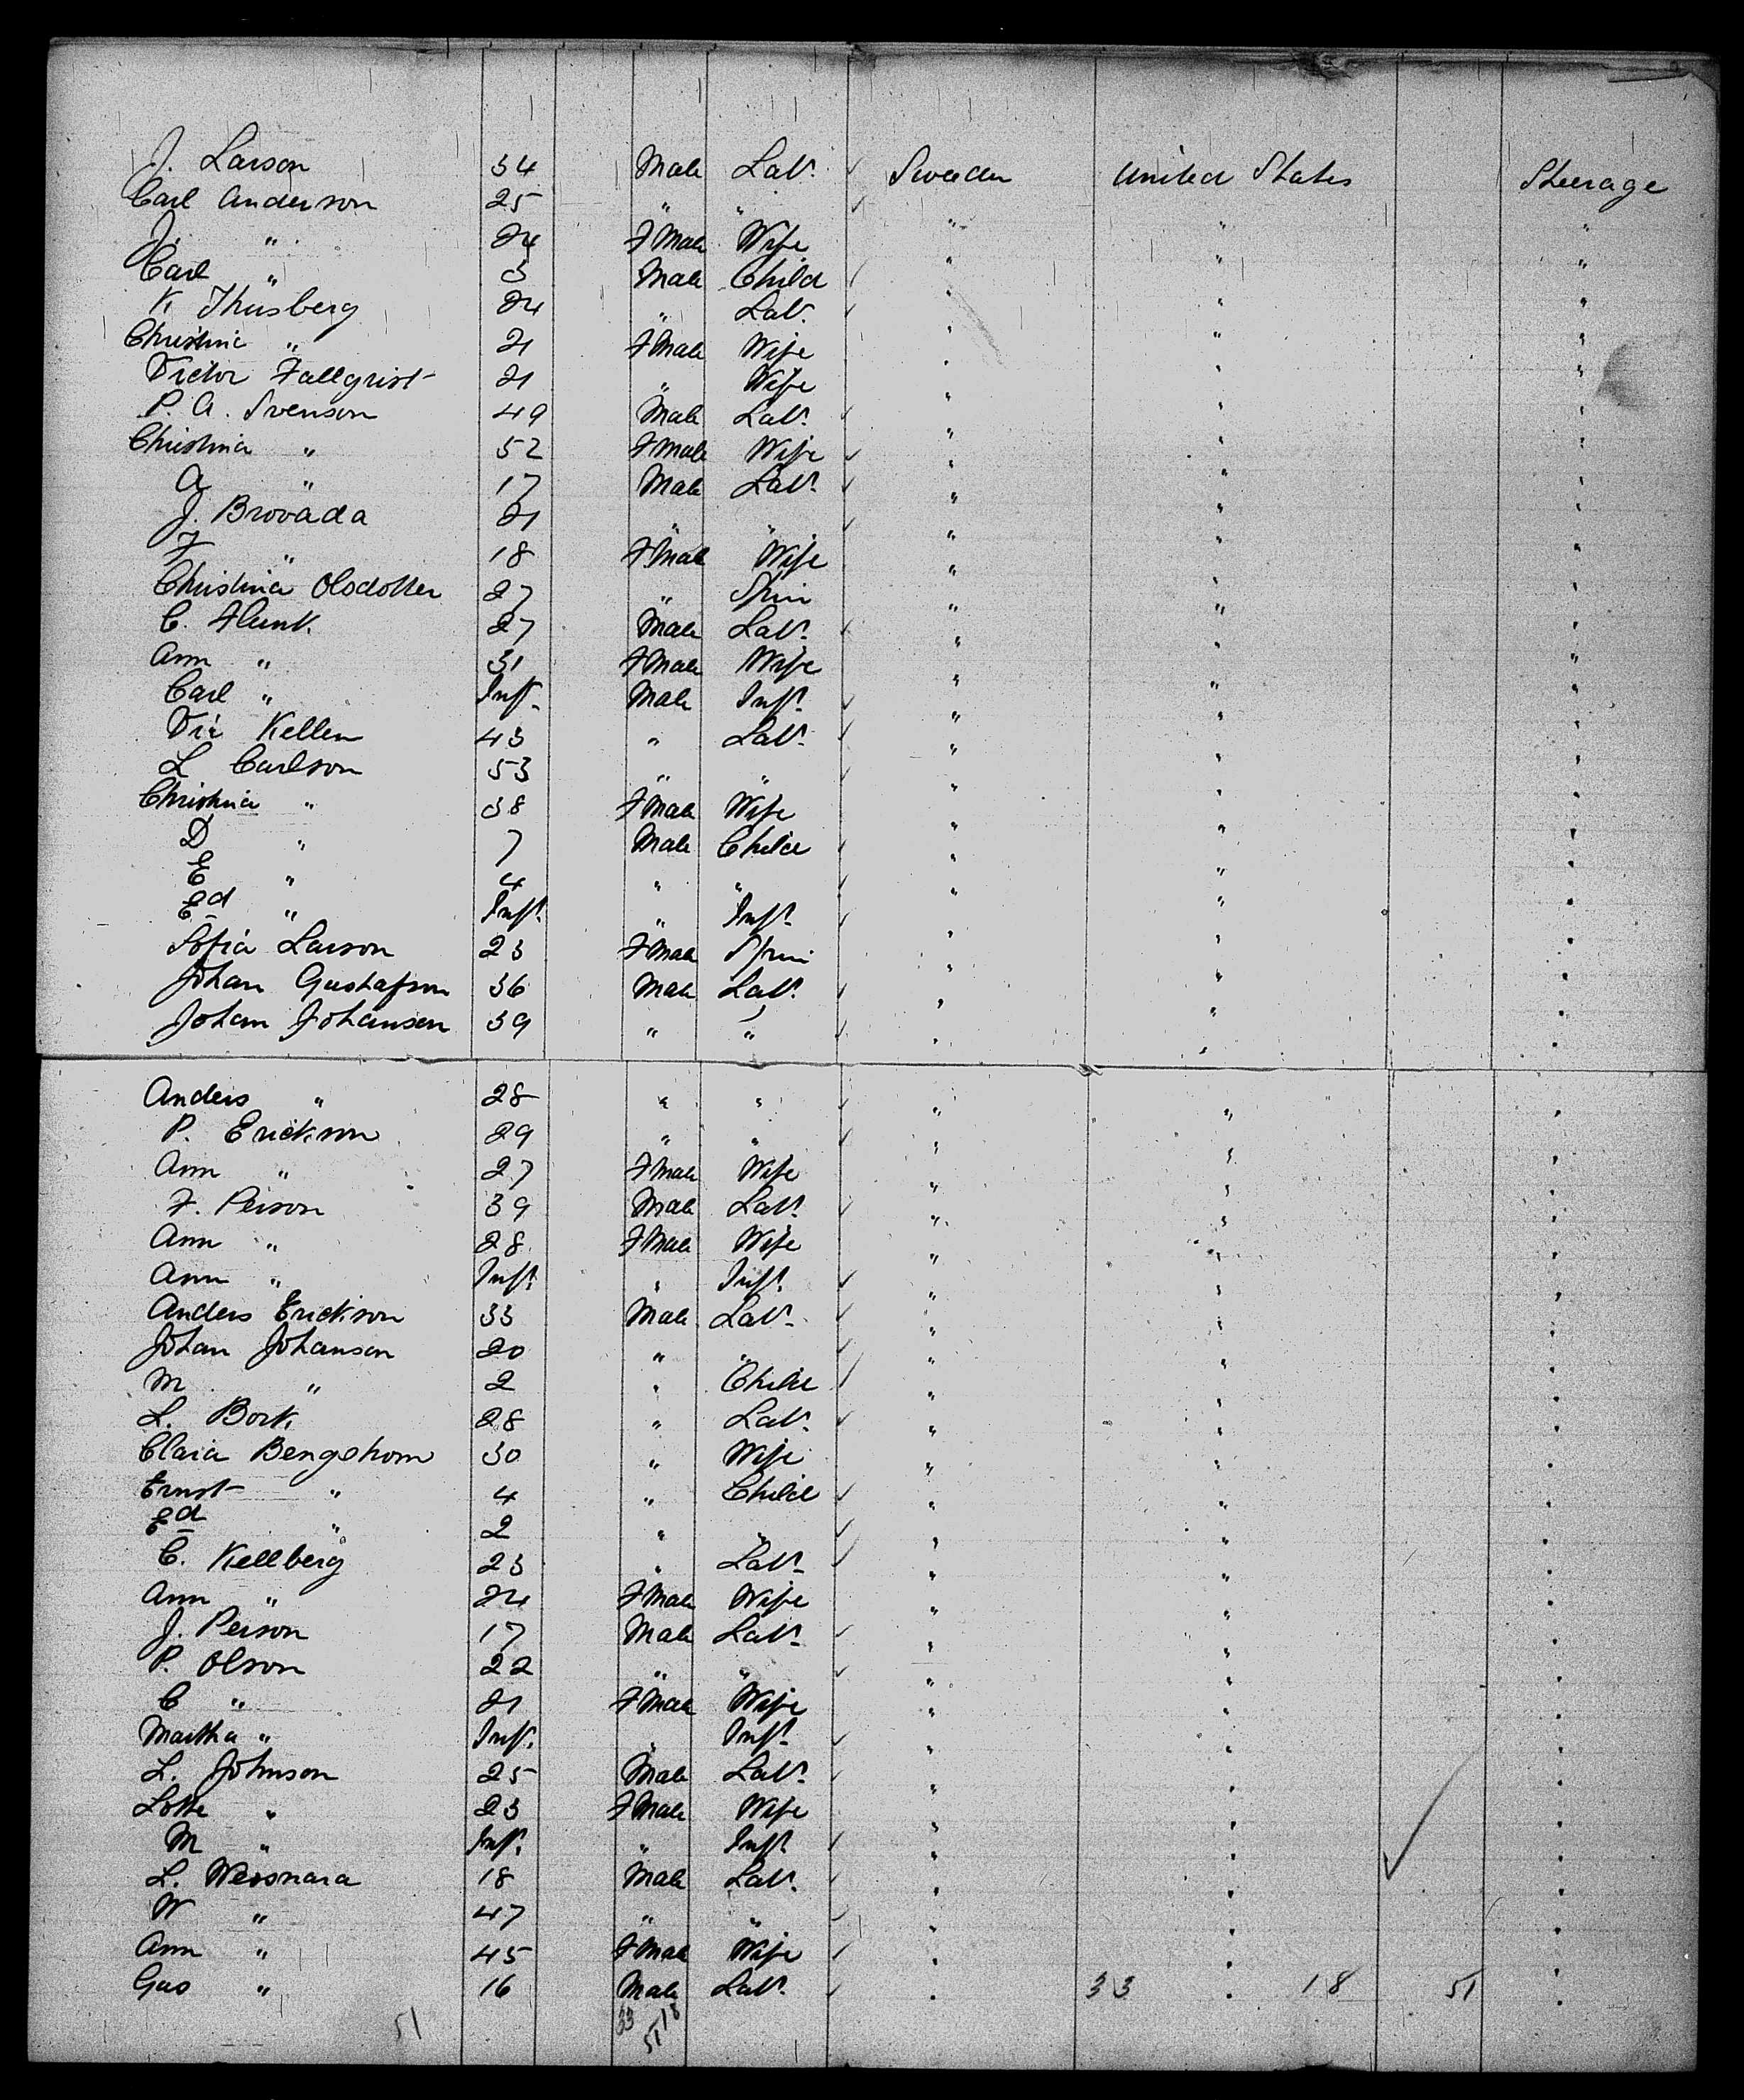 J. Larson 34 Male Labr. ✓ Sweden United States Steerage
Carl Anderson 25 " " ✓ " " "
J. " 24 Fmale Wife " " "
Carl " 3 Male Child ✓ " " "
K Thusberg 24 " Labr. ✓ " " "
Christina " 21 Fmale Wife " " "
Victor Fallqrist 21 " Wife " " "
P. A. Svenson 49 Male Labr. ✓ " " "
Christina " 52 Fmale Wife ✓ " " "
A " 17 Male Labr. ✓ " " "
J. Brovada 21 " " ✓ " " "
J " 18 Fmale Wife " " "
Christina Olsdotter 27 " Spin " " "
C. Flunk. 27 Male Labr. ✓ " " "
Ann " 31 Fmale Wife " " "
Carl " Inft. Male Inft. ✓ " " "
Vic Kellen 43 " Labr. ✓ " " "
L Carlson 53 " " ✓ " " "
Christina " 38 Fmale Wife " " "
D " 7 Male Child ✓ " " "
E " 4 " " ✓ " " "
Ed " Inft. " Inft. ✓ " " "
Sofia Larson 23 Fmale Spin " " "
Johan Gustafson 36 Male Labr. ✓ " " "
Johan Johansen 39 " " ✓ " " "
Anders " 28 " " ✓ " " "
P. Erickson 29 " " ✓ " " "
Ann " 27 Fmale Wife " " "
F. Person 39 Male Labr. ✓ " " "
Ann " 28 Fmale Wife " " "
Ann " Inft. " Inft. ✓ " " "
Anders Erickson 33 Male Labr. ✓ " " "
Johan Johanson 20 " " ✓ " " "
M " 2 " Child ✓ " " "
L. Bork. 28 " Labr. ✓ " " "
Clara Bengshom 30 " Wife " " "
Ernst " 4 " Child ✓ " " "
Ed " 2 " " ✓ " " "
C. Kellberg 23 " Labr. ✓ " " "
Ann " 24 Fmale Wife " " "
J. Person 17 Male Labr. ✓ " " "
P. Olson 22 " " ✓ " " "
C " 21 Fmale Wife " " "
Martha " Inft. " Inft. ✓ " " "
L. Johnson 25 Male Labr. ✓ " " "
Lotte " 23 Fmale Wife " " "
M " Inft. " Inft. ✓ " " "
L. Weosnara 18 Male Labr. ✓ " " "
W " 47 " " ✓ " " "
Ann " 45 Fmale Wife ✓ " " "
Gus " 16 Male Labr. ✓ " 33 " 18 51 "
51 33 18
51